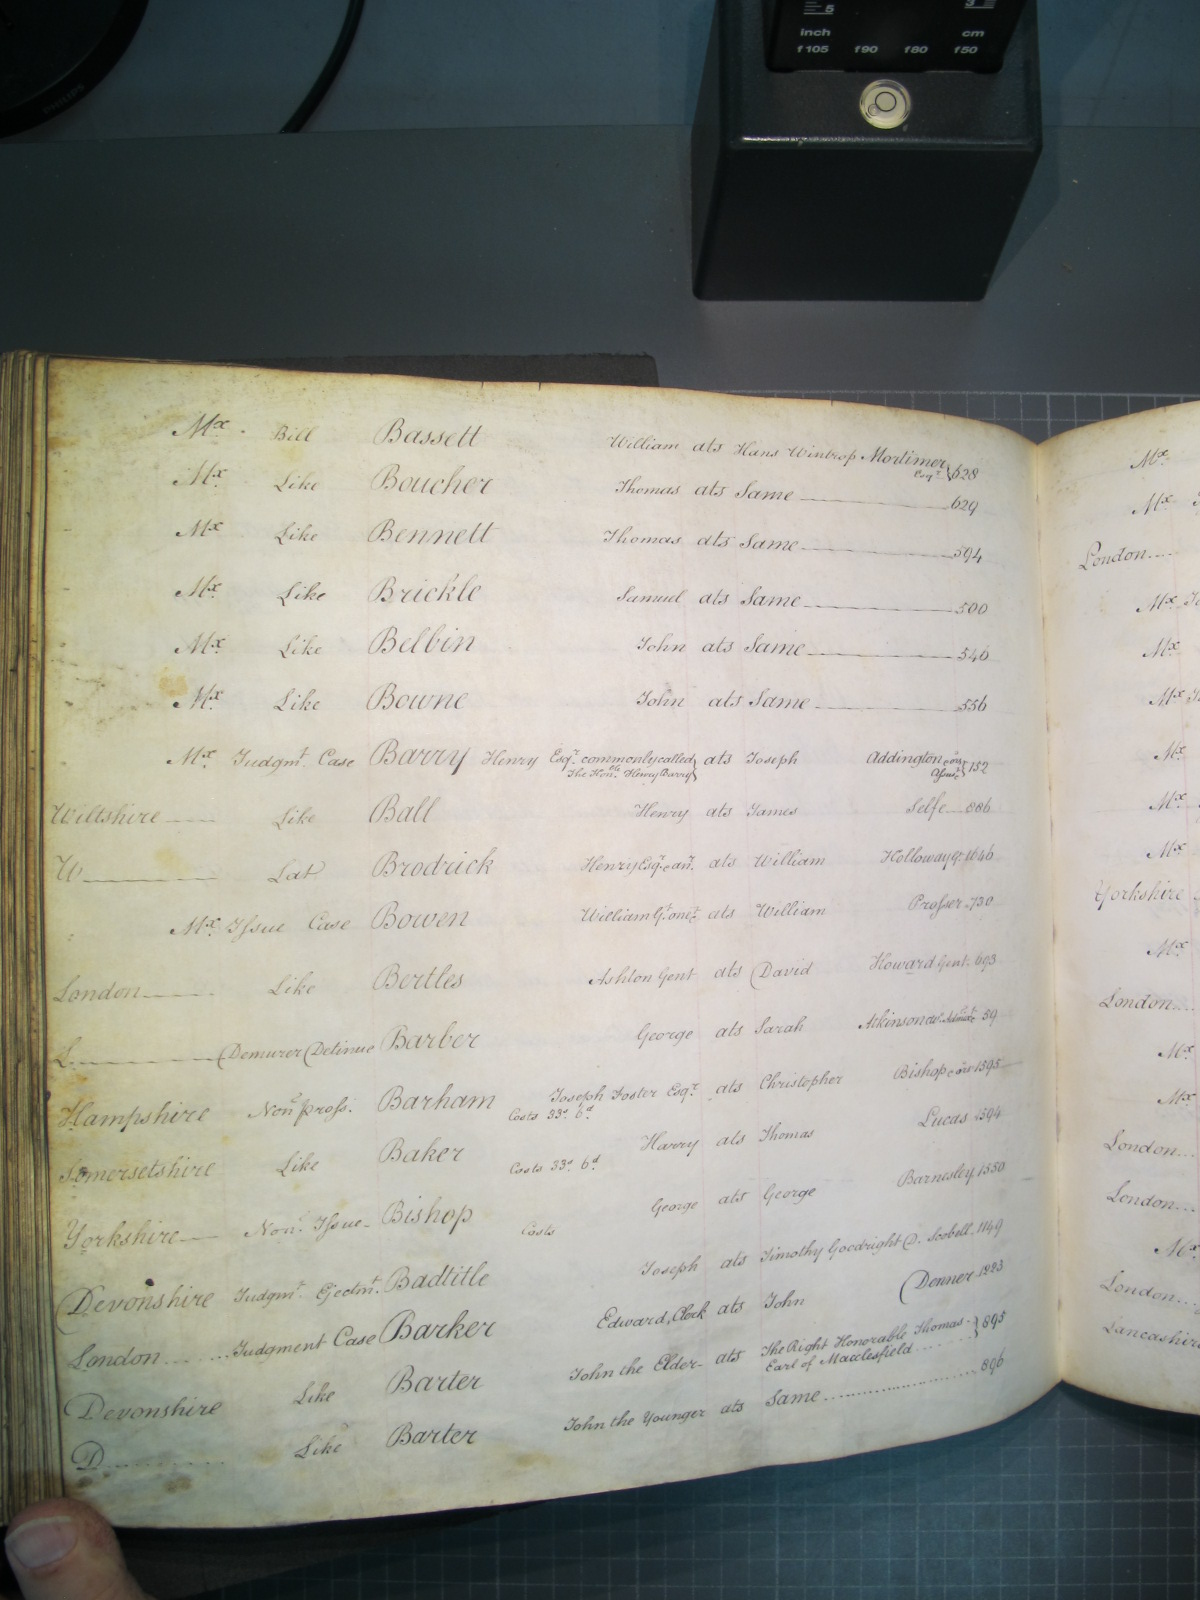 5
3
inch cm
f105 f90 f80 f50
PHILIPS
Mx. Bill Bassett William ats Hans Wintrop Mortimer Esqr. 628
Mx. Like Boucher Thomas ats Same 629
Mx. Like Bennett Thomas ats Same 594
Mx. Like Brickle Samuel ats Same 500
Mx. Like Belbin John ats Same 546
Mx. Like Bowne John ats Same 556
Mx. Judgmt. Case Barry Henry Esqr. commonly called The Honble. Henry Barry ats Joseph Addington 152
Wiltshire Like Ball Henry ats James Selfe 886
W Lat Brodrick Henry Esqr. ats William Holloway 1646
Mx. Issue Case Bowen William Gt. one &c. ats William Prosser 730
London Like Bertles Ashton Gent ats David Howard Gent. 693
L Demurer Detinue Barber George ats Sarah Atkinson 59
Hampshire Non pross. Barham Joseph Foster Esqr. ats Christopher Bishop 1595
Costs 33s. 6d
Somersetshire Like Baker Harry ats Thomas Lucas 1594
Costs 33s. 6d
Yorkshire Non Issue Bishop George ats George Barnesley 1550
Costs
Devonshire Judgmt. Ejectmt. Badtitle Joseph ats Timothy Goodright D. Scobell 1149
London Judgment Case Barker Edward, Clerk ats John Denner 1223
Devonshire Like Barter John the Elder ats The Right Honorable Thomas Earl of Macclesfield 895
D Like Barter John the Younger ats Same 896
Mx.
Mx.
London
Mx.
Mx.
Mx.
Mx.
Mx.
Mx.
Yorkshire
Mx.
London
Mx.
Mx.
London
London
Mx.
London
Lancashire